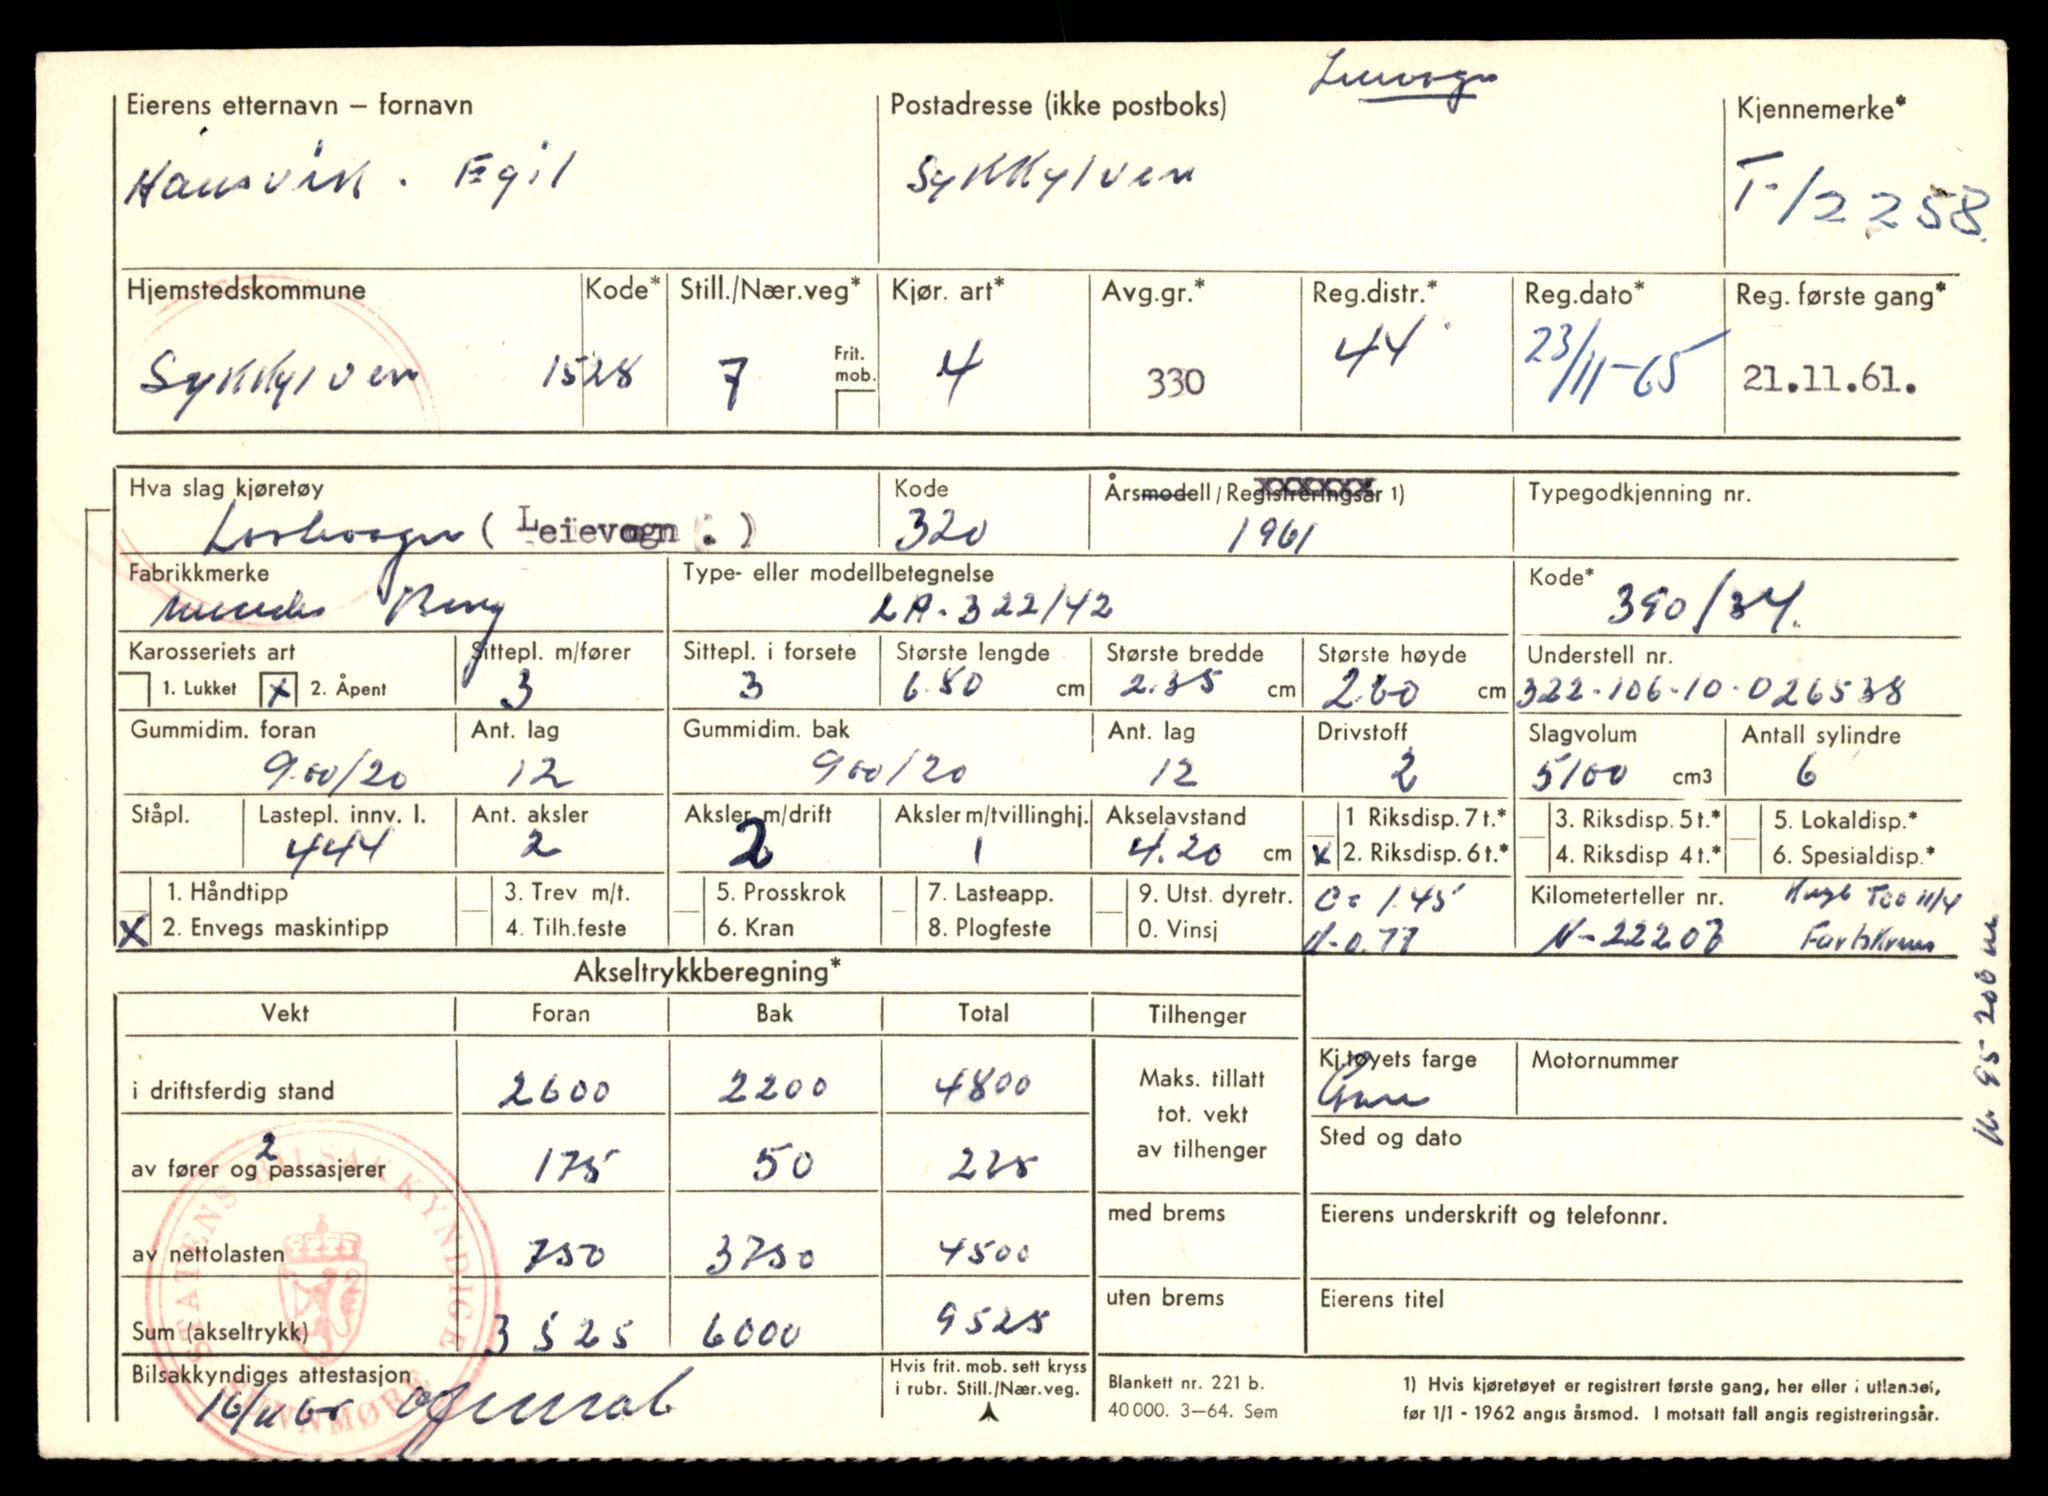 Eierens etternavn – fornavn Postadresse (ikke postboks) Kjennemerke*
Hansvik. Egil Sykkylven T-12258.
Hjemstedskommune Kode* Still./Nær.veg* Kjør. art* Avg.gr.* Reg.distr.* Reg.dato* Reg. første gang*
Sykkylven 1528 7 Frit. mob. 4 330 44 23/11-65 21.11.61.
Hva slag kjøretøy Kode Årsmodell / Registreringsår 1) Typegodkjenning nr.
Lastevogn (Leievogn.) 320 1961
Fabrikkmerke Type- eller modellbetegnelse Kode*
Mercedes Benz LA-322/42 390/34.
Karosseriets art Sittepl. m/fører Sittepl. i forsete Største lengde Største bredde Største høyde Understell nr.
1. Lukket X 2. Åpent 3 3 6.50 cm 2.35 cm 2.60 cm 322-106-10-026538
Gummidim. foran Ant. lag Gummidim. bak Ant. lag Drivstoff Slagvolum Antall sylindre
900/20 12 900/20 12 2 5100 cm3 6
Ståpl. Lastepl. innv. l. Ant. aksler Aksler m/drift Aksler m/tvillinghj. Akselavstand 1 Riksdisp. 7 t.* 3. Riksdisp. 5 t.* 5. Lokaldisp.*
444 2 2 1 4.20 cm X 2. Riksdisp. 6 t.* 4. Riksdisp 4 t.* 6. Spesialdisp.*
1. Håndtipp 3. Trev m/t. 5. Prosskrok 7. Lasteapp. 9. Utst. dyretr. C= 1.45 Kilometerteller nr.
X 2. Envegs maskintipp 4. Tilh.feste 6. Kran 8. Plogfeste 0. Vinsj 0.77 N-22207
Akseltrykkberegning*
Vekt Foran Bak Total Tilhenger
i driftsferdig stand 2600 2200 4800 Maks. tillatt tot. vekt av tilhenger Kj.tøyets farge Motornummer
Sted og dato
av fører og 2 passasjerer 175 50 225
med brems Eierens underskrift og telefonnr.
av nettolasten 750 3750 4500
uten brems Eierens titel
Sum (akseltrykk) 3525 6000 9525
Bilsakkyndiges attestasjon Hvis frit. mob. sett kryss i rubr. Still./Nær.veg.
16/11 65
Blankett nr. 221 b.
40 000. 3–64. Sem
1) Hvis kjøretøyet er registrert første gang, her eller i utlandet,
før 1/1 - 1962 angis årsmod. I motsatt fall angis registreringsår.
STATENS BILSAKKYNDIGE
SUNNMØRE